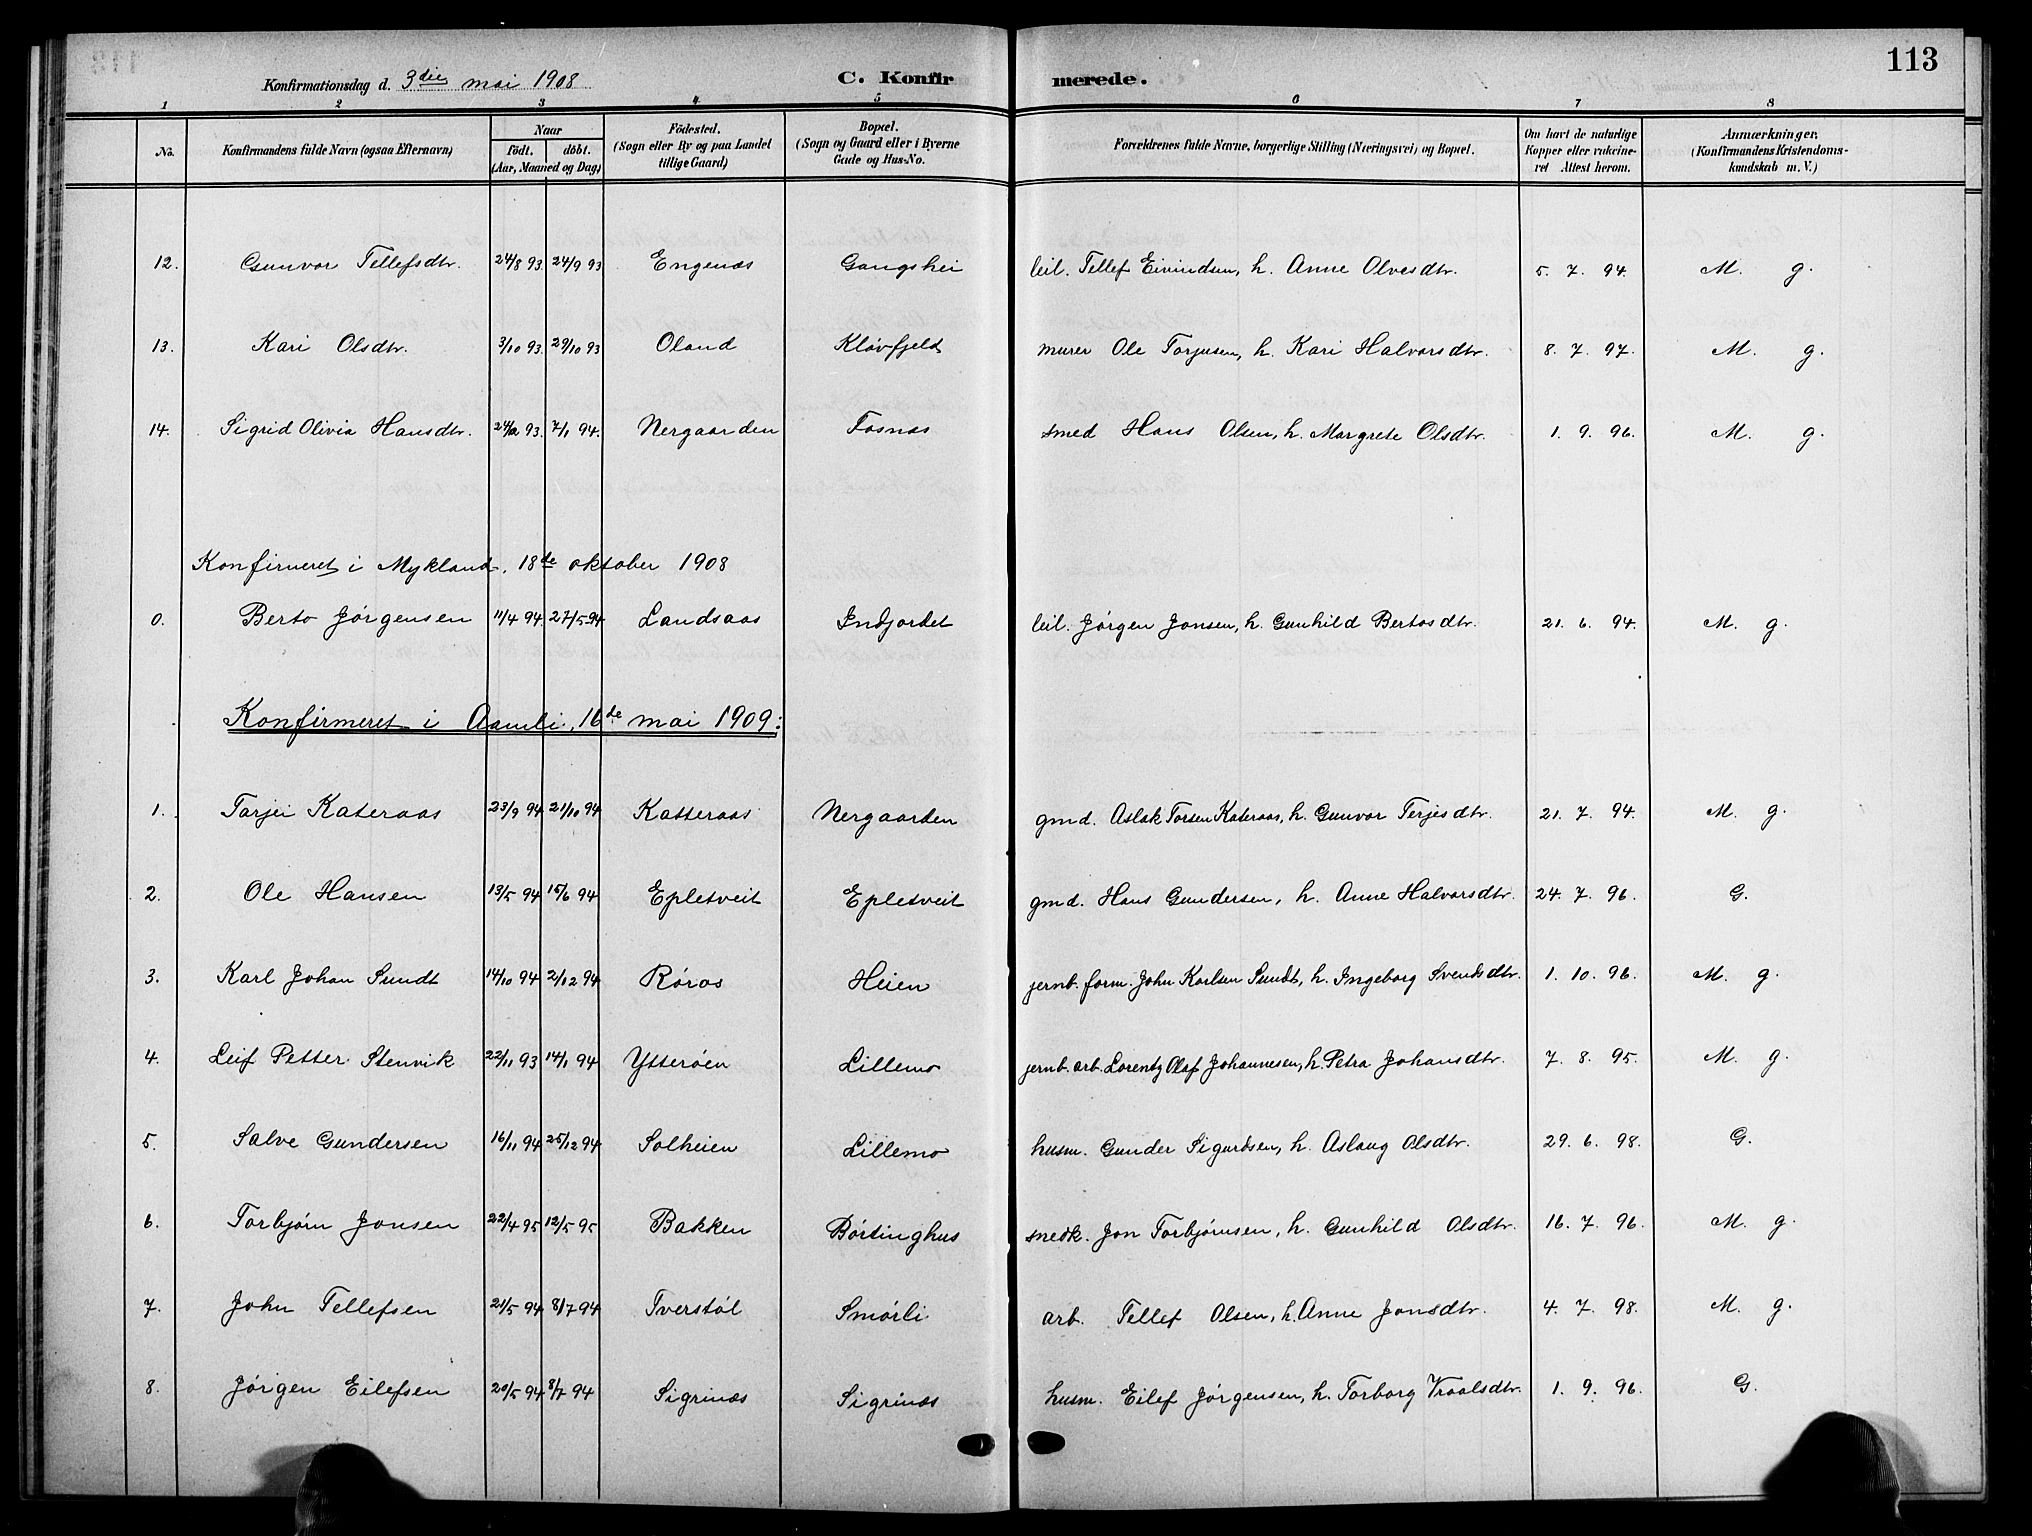 113
Konfirmationsdag d. 3die mai 1908 C. Konfirmerede.
1 2 3 4 5 6 7 8
No. Konfirmandens fulde Navn (ogsaa Efternavn) Naar födt. döbt. (Aar, Maaned og Dag) Födested. (Sogn eller By og paa Landet tillige Gaard) Bopæl. (Sogn og Gaard eller i Byerne Gade og Hus-No. Forældrenes fulde Navne, borgerlige Stilling (Næringsvei) og Bopæl. Om havt de naturlige Kopper eller vakcineret Attest herom. Anmærkninger. (Konfirmandens Kristendomskundskab m. V.)
12. Gunvor Tellefsdtr. 24/8 93 24/9 93 Engenæs Gangshei leil. Tellef Eivindsen, h. Anne Olvesdtr. 5. 7. 94. M. g.
13. Kari Olsdtr. 3/10 93 29/10 93 Oland Kløvfjeld murer Ole Torjusen, h. Kari Halvorsdtr. 8. 7. 97. M. g.
14. Sigrid Olivia Hansdtr. 93. 7/1 94. Nergaarden Fosnæs smed Hans Olsen, h. Margrete Olsdtr. 1. 9. 96. M. g.
Konfirmeret i Mykland, 18de oktober 1908
0. Berto Jørgensen 11/4 94 27/5 94 Landsaas Indjordet leil. Jørgen Jonsen, h. Gunhild Bertosdtr. 21. 6. 94. M. g.
Konfirmeret i Aamli, 16de mai 1909:
1. Tarjei Kateraas 23/9 94 21/10 94 Katteraas Nergaarden gmd. Aslak Torsen Kateraas, h. Gunvor Terjesdtr. 21. 7. 94. M. g.
2. Ole Hansen 13/5 94 15/6 94 Epletveit Epletveit gmd. Hans Gundersen, h. Anne Halvorsdtr. 24. 7. 96. G.
3. Karl Johan Sundt 14/10 94 2/12 94 Røros Heien jernb. form. John Karlsen Sundt, h. Ingeborg Svendsdtr. 1. 10. 96. M. g.
4. Leif Petter Stenvik 22/11 93 14/1 94 Ytterøen Lillemo jernb. arb. Lorentz Olaf Johannesen, h. Petra Johansdtr. 7. 8. 95. M. g.
5. Salve Gundersen 16/11 94 25/12 94 Solheien Lillemo husm. Gunder Sigurdsen, h. Aslaug Olsdtr. 29. 6. 98. G.
6. Torbjørn Jonsen 22/4 95 12/5 95 Bakken Børtinghus snedk. Jon Torbjørnsen, h. Gunhild Olsdtr. 16. 7. 96. M. g.
7. John Tellefsen 21/5 94 8/7 94 Tverstøl Smørli arb. Tellef Olsen, h. Anne Jonsdtr. 4. 7. 98. M. g.
8. Jørgen Eilefsen 20/5 94 8/7 94 Sigrinæs Sigrinæs husm. Eilef Jørgensen, h. Torborg Vraalsdtr. 1. 9. 96. G.